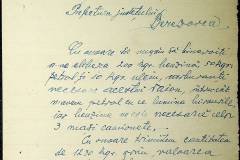 Prefectura județului
Dorohoiu
Cu onoare vă rugăm să binevoiți
a ne elibera 200 kgr. benzină, 50 kgr.
petrol și 10 kgr. ulei, carburanți
necesari acestui raion, întrucât
n'avem petrol cu ce lumina birourile,
iar benzina necesară
3 mașini camionete.
Cu onoare trimitem cantitatea
de 1230 kgr. valoarea